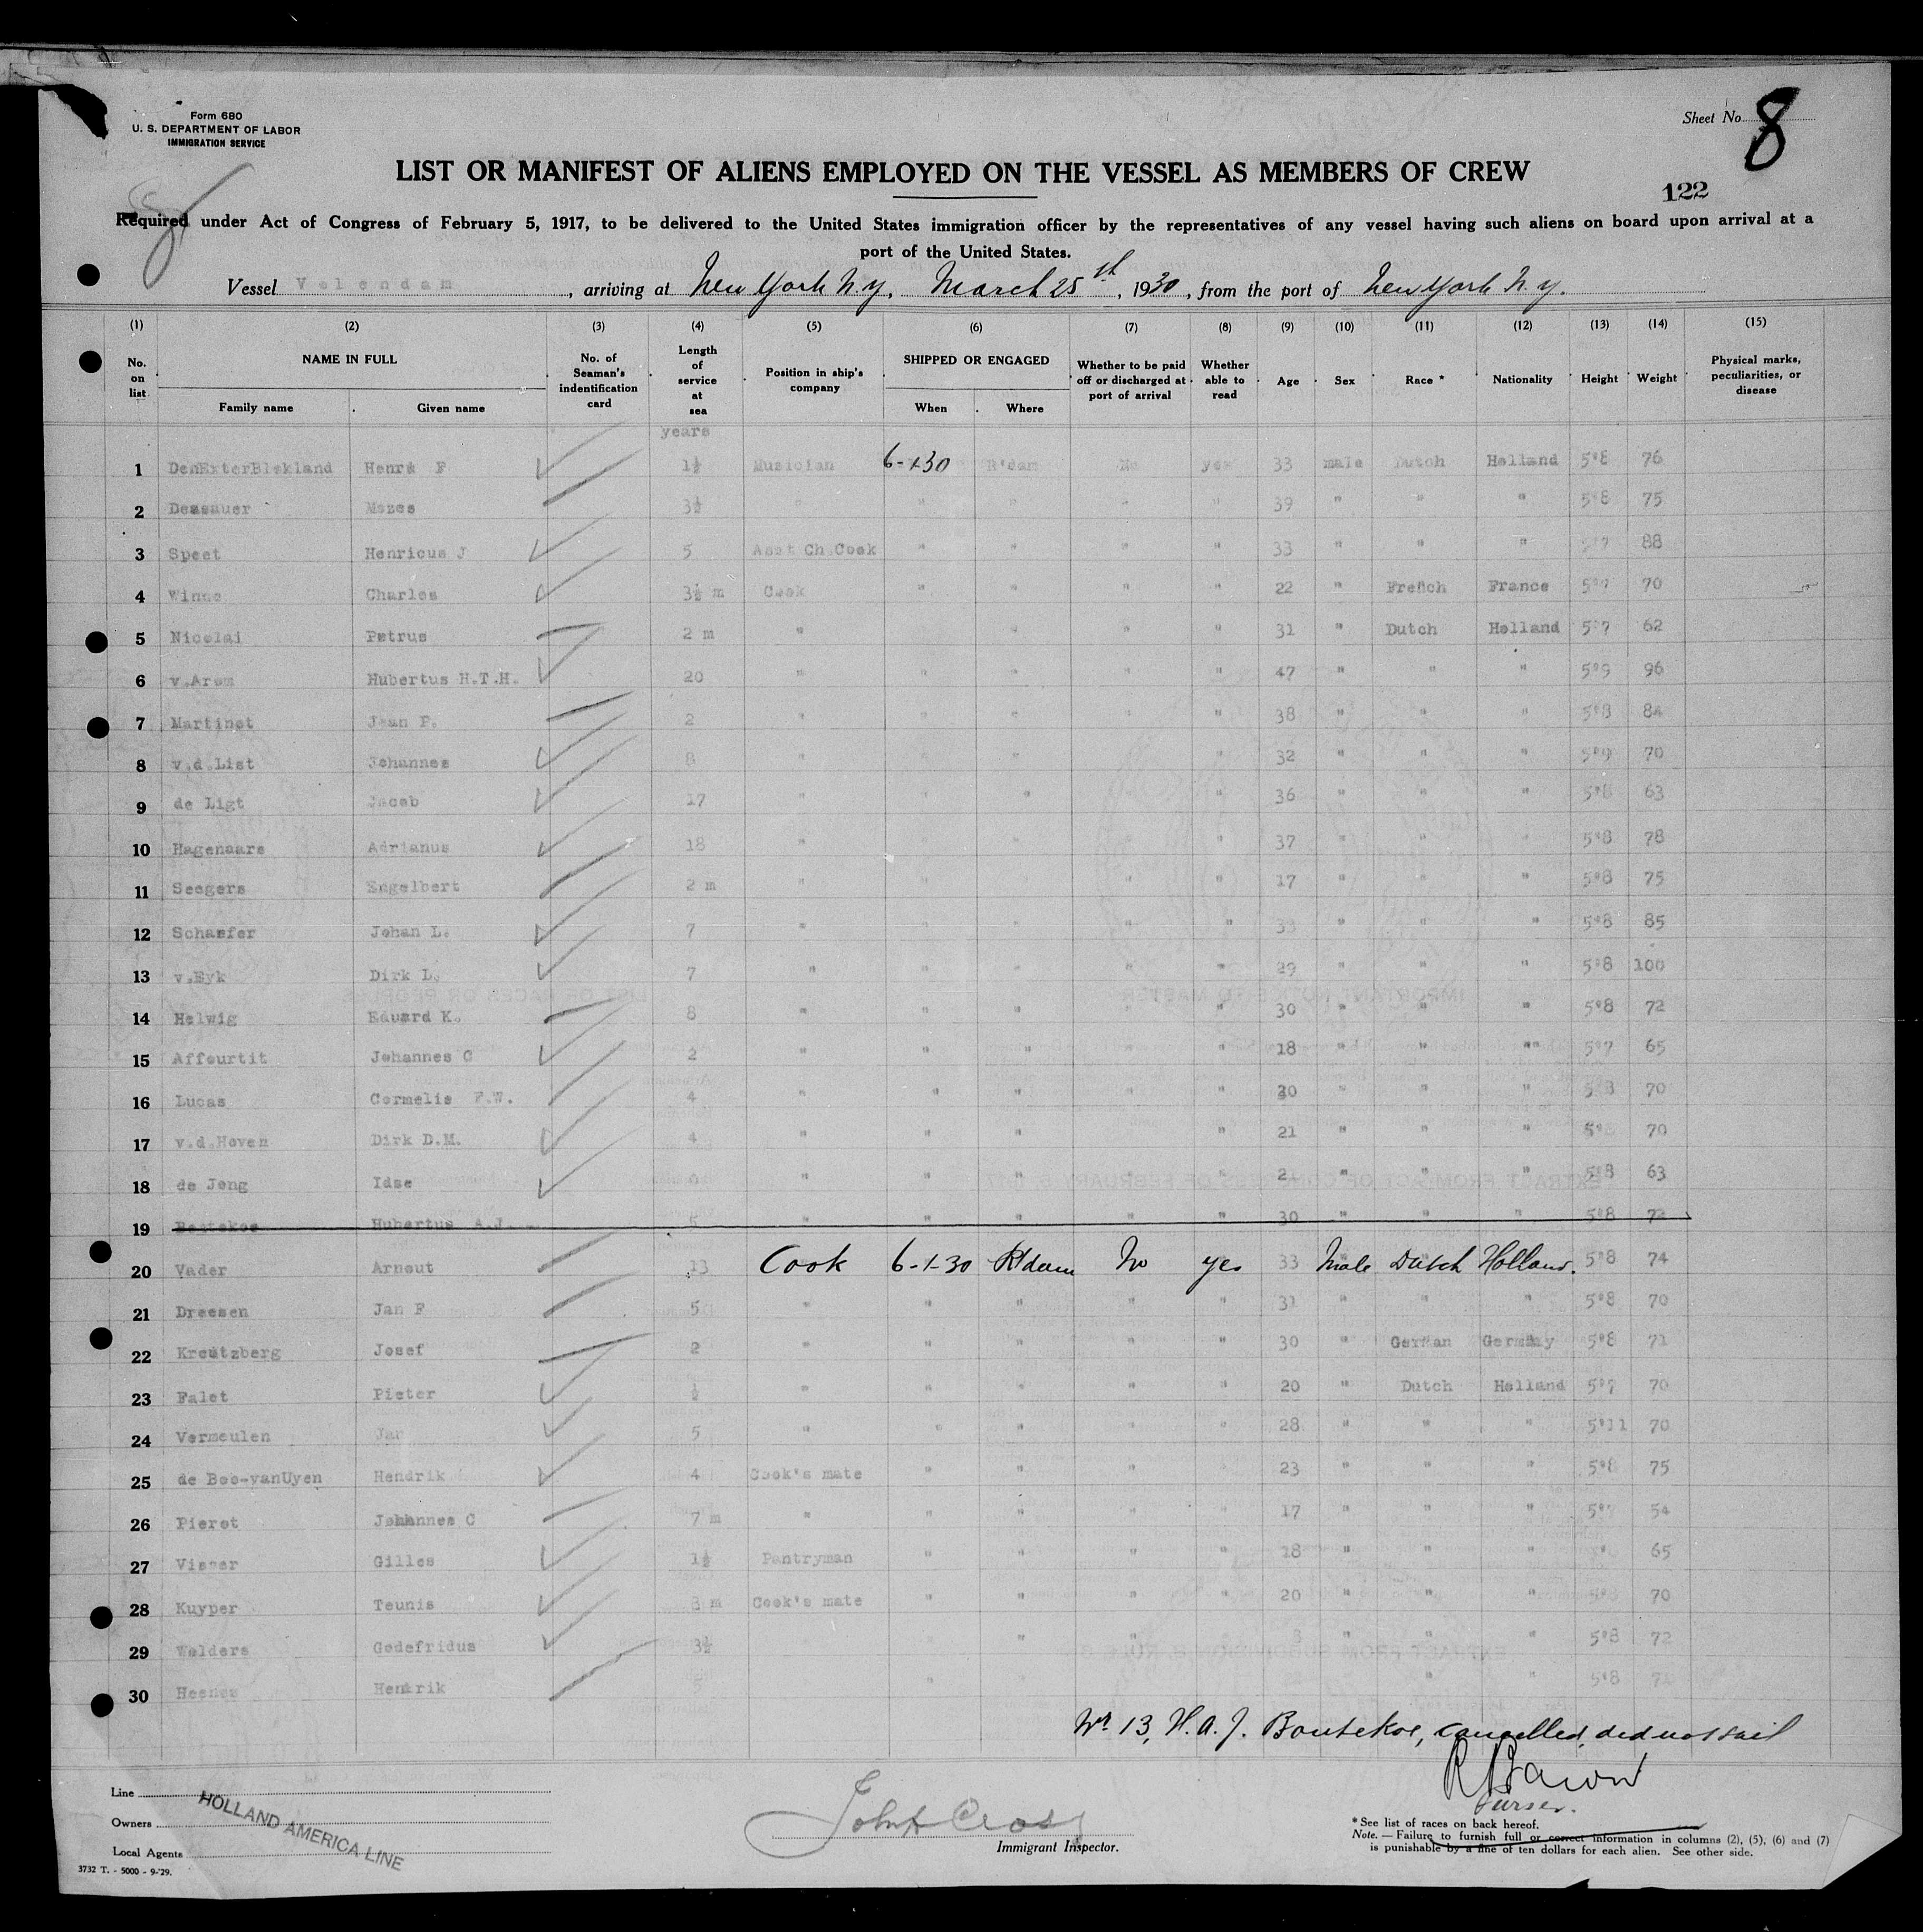 Form 680
U. S. DEPARTMENT OF LABOR
IMMIGRATION SERVICE
Sheet No. 8
LIST OR MANIFEST OF ALIENS EMPLOYED ON THE VESSEL AS MEMBERS OF CREW
122
Required under Act of Congress of February 5, 1917, to be delivered to the United States immigration officer by the representatives of any vessel having such aliens on board upon arrival at a
port of the United States.
Vessel Volendam, arriving at New York N.Y., March 25st, 1930, from the port of New York N.Y.
(1) (2) (3) (4) (5) (6) (7) (8) (9) (10) (11) (12) (13) (14) (15)
No. on list NAME IN FULL Family name Given name No. of Seaman's indentification card Length of service at sea Position in ship's company SHIPPED OR ENGAGED When Where Whether to be paid off or discharged at port of arrival Whether able to read Age Sex Race * Nationality Height Weight Physical marks, peculiarities, or disease
years
1 DenExterBlokland Henri F 1½ Musician 6-1-30 R'dam No yes 33 male Dutch Holland 5'8 76
2 Dessauer Mozes 3½ " " " " " 39 " " " 5'8 75
3 Speet Henricus J 5 Asst Ch.Cook " " " " 33 " " " 5'7 88
4 Winne Charles 3½ m Cook " " " " 22 " French France 5'7 70
5 Nicolai Petrus 2 m " " " " 31 " Dutch Holland 5'7 62
6 v.Arem Hubertus H.T.H. 20 " " " " 47 " " " 5'9 96
7 Martinet Jean P. 2 " " " " 38 " " " 5'8 84
8 v.d.List Johannes 8 " " " " 32 " " " 5'9 70
9 de Ligt Jacob 17 " " " 36 " " " 5'8 63
10 Hagenaars Adrianus 18 " " " 37 " " " 5'8 78
11 Seegers Engelbert 2 m " " " " " 17 " " " 5'8 75
12 Schaefer Johan L. 7 " " " " " 33 " " " 5'8 85
13 v.Eyk Dirk L. 7 " " " " " 29 " " " 5'8 100
14 Helwig Eduard K. 8 " " " " " 30 " " " 5'8 72
15 Affourtit Johannes C 2 " " " " " 18 " " " 5'7 65
16 Lucas Cornelis F.W. 4 " " " " " " " " 5'8 70
17 v.d.Hoven Dirk D.M. 4 " " " " 21 " " " 70
18 de Jong Idse " " " " " " " " 5'8 63
19 Hubertus A.J. 5 " " " " " 30 " " " 5'8 72
20 Vader Arnout 13 Cook 6-1-30 R'dam No yes 33 Male Dutch Holland. 5'8 74
21 Dreesen Jan F 5 " " " " " 31 " " " 5'8 70
22 Kreutzberg Josef 2 " " " " " 30 " German Germany 5'8 71
23 Falet Pieter ½ " " " " " 20 " Dutch Holland 5'7 70
24 Vermeulen Jan 5 " " " " " 28 " " " 5'11 70
25 de Boo-vanUyen Hendrik 4 Cook's mate " " " " 23 " " " 5'8 75
26 Pierot Johannes C 7 m " " " " 17 " " " 5'7 54
27 Visser Gilles 1½ Pantryman " " " " 18 " " " 65
28 Kuyper Teunis m Cook's mate " " " " 20 " " " 70
29 Welders Godefridus 3½ " " " " " " 5'8 72
30 Hendrik " " " 5'8
Nr 13, H.A.J. Boutekoe, cancelled, did not sail
Purser.
Line
Owners
Local Agents
HOLLAND AMERICA LINE
3732 T. - 5000 - 9-'29.
John Cross
Immigrant Inspector.
* See list of races on back hereof.
Note. — Failure to furnish full or correct information in columns (2), (5), (6) and (7)
is punishable by a fine of ten dollars for each alien. See other side.